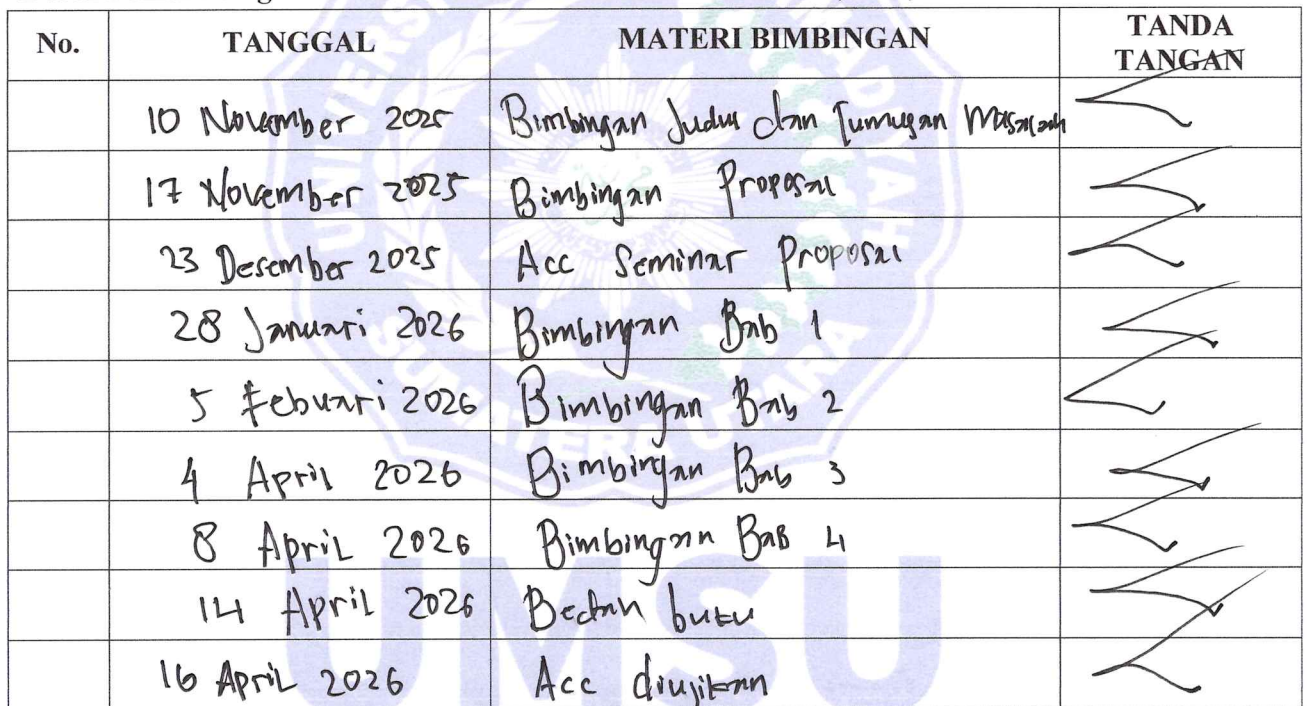 No. TANGGAL MATERI BIMBINGAN TANDA TANGAN
10 November 2025 Bimbingan Judul dan rumusan masalah
17 November 2025 Bimbingan Proposal
23 Desember 2025 Acc Seminar Proposal
28 Januari 2026 Bimbingan Bab 1
5 Febuari 2026 Bimbingan Bab 2
4 April 2026 Bimbingan Bab 3
8 April 2026 Bimbingan Bab 4
14 April 2026 Bedah buku
16 April 2026 Acc diujikan
SUMATERA UTARA
UMSU